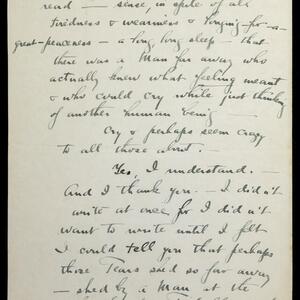 read — sense, in spite of all
tiredness & weariness & longing-for-a-
great-peaceness — a long, long sleep — that
there was a Man far away who
actually knew what feeling meant
& who could cry while just thinking
of another human being —
Cry & perhaps seem crazy
to all those about.
Yes, I understand.
And I thank you. — I didn't
write at once for I didn't
want to write until I felt
I could tell you that perhaps
those Tears shed so far away
— shed by a Man at the